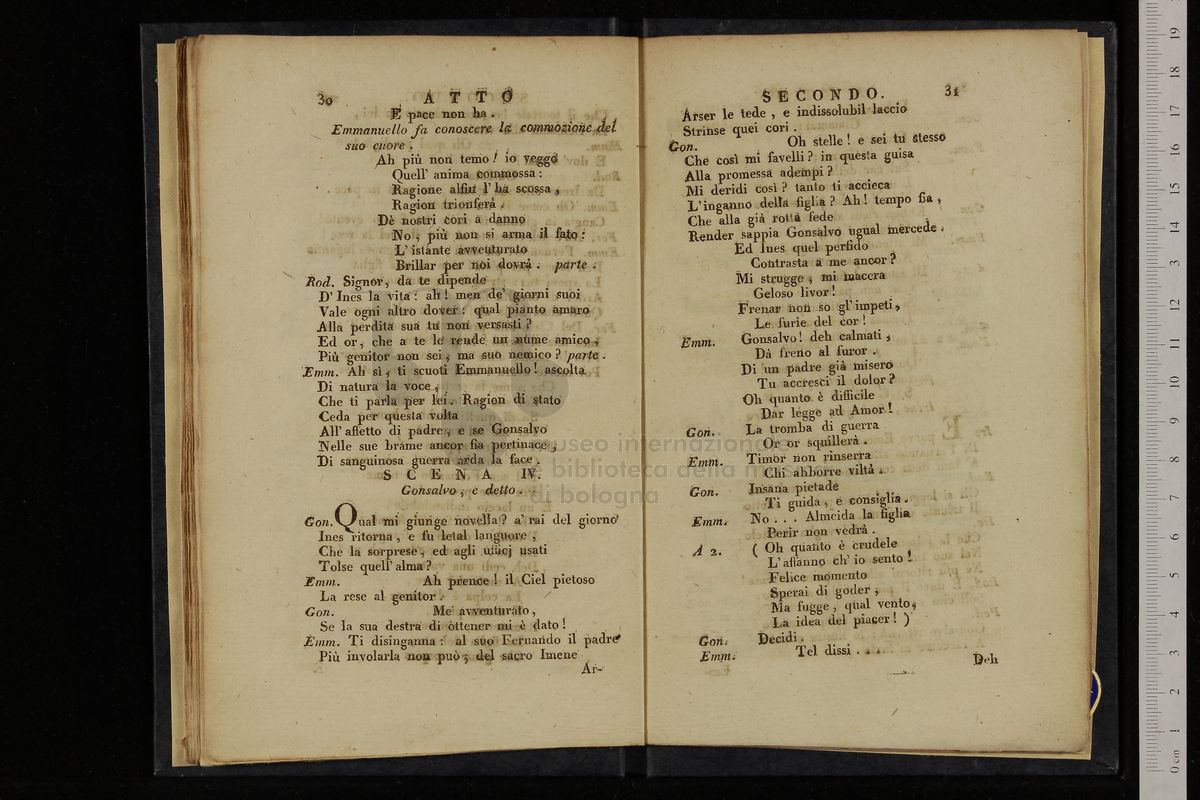 30 ATTO
E pace non ha .
Emmanuello fa conoscere la commozione del
suo cuore .
Ah più non temo ! io veggo
Quell' anima commossa :
Ragione alfin l' ha scossa ,
Ragion trionferà .
Dè nostri cori a danno
No , più non si arma il fato :
L' istante avventurato
Brillar per noi dovrà . parte .
Rod. Signor , da te dipende
D' Ines la vita : ah ! men de' giorni suoi
Vale ogni altro dover : qual pianto amaro
Alla perdita sua tu non versasti ?
Ed or , che a te le rende un nume amico ,
Più genitor non sei , ma suo nemico ? parte .
Emm. Ah sì , ti scuoti Emmanuello ! ascolta
Di natura la voce ,
Che ti parla per lei . Ragion di stato
Ceda per questa volta
All' affetto di padre , e se Gonsalvo
Nelle sue brame ancor fia pertinace ,
Di sanguinosa guerra arda la face .
SCENA IV.
Gonsalvo , e detto .
Gon. Qual mi giunge novella ? a' rai del giorno
Ines ritorna , e fu letal languore ,
Che la sorprese , ed agli ufficj usati
Tolse quell' alma ?
Emm. Ah prence ! il Ciel pietoso
La rese al genitor .
Gon. Me' avventurato ,
Se la sua destra di ottener mi è dato !
Emm. Ti disinganna : al suo Fernando il padre
Più involarla non può ; del sacro Imene
Ar-
SECONDO. 31
Arser le tede , e indissolubil laccio
Strinse quei cori .
Gon. Oh stelle ! e sei tu stesso
Che così mi favelli ? in questa guisa
Alla promessa adempi ?
Mi deridi così ? tanto ti accieca
L'inganno della figlia ? Ah ! tempo fia ,
Che alla già rotta fede
Render sappia Gonsalvo ugual mercede .
Ed Ines quel perfido
Contrasta a me ancor ?
Mi strugge , mi macera
Geloso livor !
Frenar non so gl' impeti ,
Le furie del cor !
Emm. Gonsalvo ! deh calmati ,
Dà freno al furor .
Di un padre già misero
Tu accresci il dolor ?
Oh quanto è difficile
Dar legge ad Amor !
Gon. La tromba di guerra
Or or squillerà .
Emm. Timor non rinserra
Chi abborre viltà .
Gon. Insana pietade
Ti guida , e consiglia .
Emm. No . . . Almeida la figlia
Perir non vedrà .
A 2. ( Oh quanto è crudele
L' affanno ch' io sento !
Felice momento
Sperai di goder ,
Ma fugge , qual vento ,
La idea del piacer ! )
Gon. Decidi .
Emm. Tel dissi . . .
Deh
museo internazionale
biblioteca della musica
di bologna